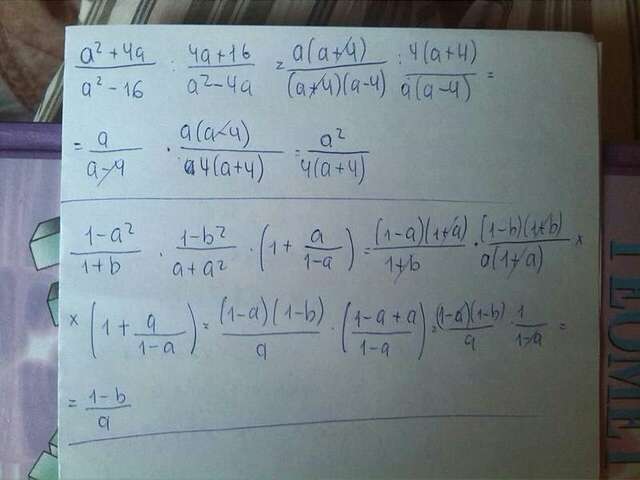 \frac{a^2+4a}{a^2-16} : \frac{4a+16}{a^2-4a} = \frac{a(a+4)}{(a+4)(a-4)} : \frac{4(a+4)}{a(a-4)} =
= \frac{a}{a-4} \cdot \frac{a(a-4)}{4(a+4)} = \frac{a^2}{4(a+4)}
\frac{1-a^2}{1+b} \cdot \frac{1-b^2}{a+a^2} \cdot (1+\frac{a}{1-a}) = \frac{(1-a)(1+a)}{1+b} \cdot \frac{(1-b)(1+b)}{a(1+a)} ×
× (1+\frac{a}{1-a}) = \frac{(1-a)(1-b)}{a} \cdot (\frac{1-a+a}{1-a}) = \frac{(1-a)(1-b)}{a} \cdot \frac{1}{1-a} =
= \frac{1-b}{a}